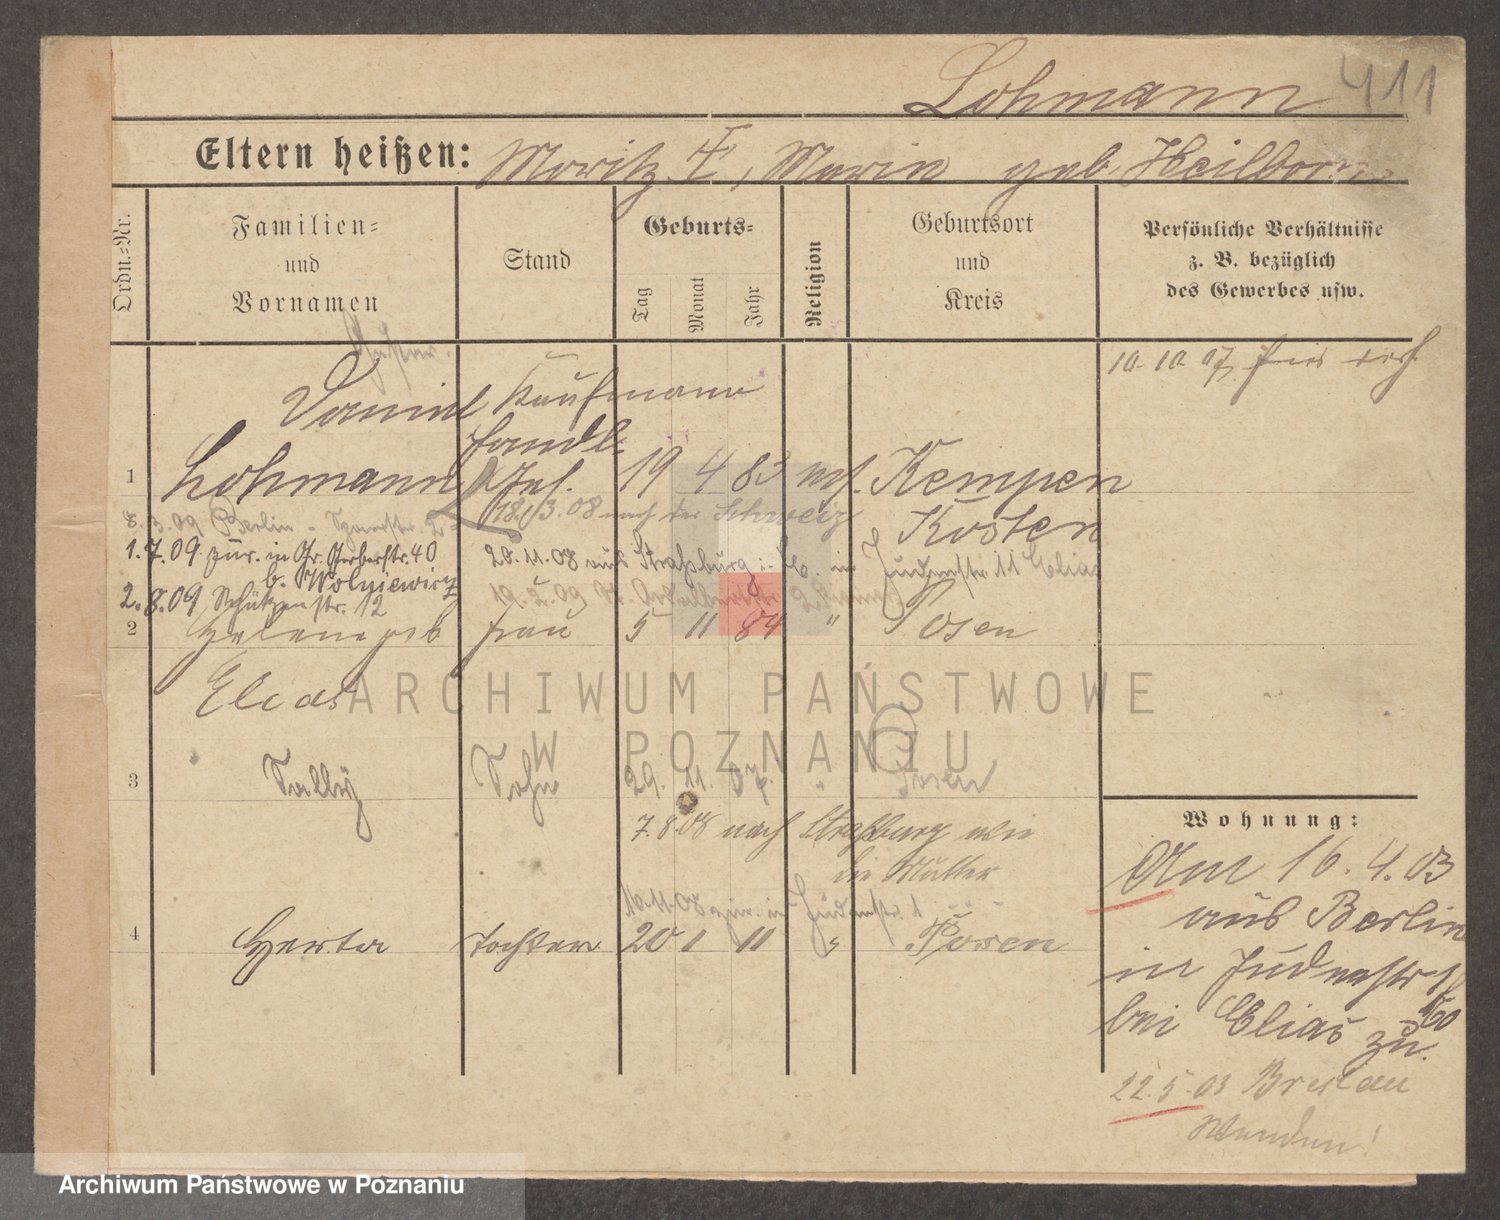 Lohmann 411
Eltern heißen: Moritz T, Marie geb. Heilborn
Ordn.-Nr.
Familien-
und
Vornamen
Stand
Geburts-
Tag
Monat
Jahr
Religion
Geburtsort
und
Kreis
Persönliche Verhältnisse
z. B. bezüglich
des Gewerbes usw.
10.10.07
Kaufmann
Handl.
1 Lohmann 19 4 83 Kempen
18./3.08 nach der Schweiz Kosten
8.3.09 Berlin
1.7.09 zur. in Gr. Gerberstr. 40 20.11.08 aus Straßburg in Judenstr. 11 Elias
b. Wolniewicz
2.8.09 Schützenstr. 12 19.2.09
2 Helene geb Frau 5 11 84 " Posen
Elias
3 Sally Sohn 29. 11. 07. " Posen
7.8.08 nach Straßburg wie
die Mutter
10.11.08 zur. in Judenstr. 1
4 Herta Tochter 20 1 11 " Posen
Wohnung:
Am 16.4.03
aus Berlin
in Judenstr
bei Elias zu.
22.5.03 Breslau
Wenden!
ARCHIWUM PAŃSTWOWE
W POZNANIU
Archiwum Państwowe w Poznaniu